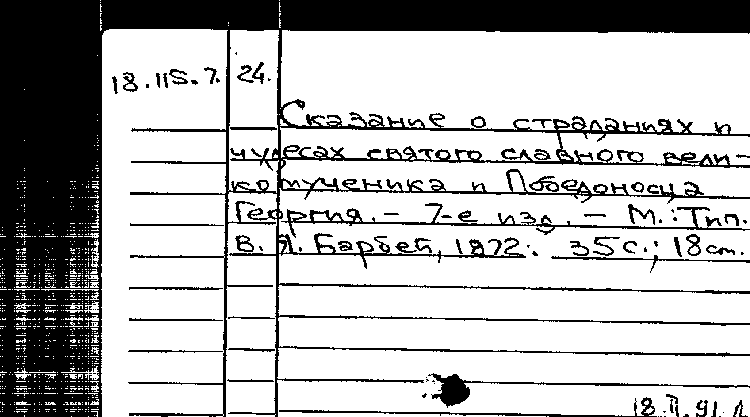 18.115.7. 24.
Сказание о страданиях и
чудесах святого славного вели-
комученика и Победоносца
Георгия. – 7-е изд. – М.: Тип.
В. Я. Барбей, 1872. 35 с.; 18 см.
18.II.91.